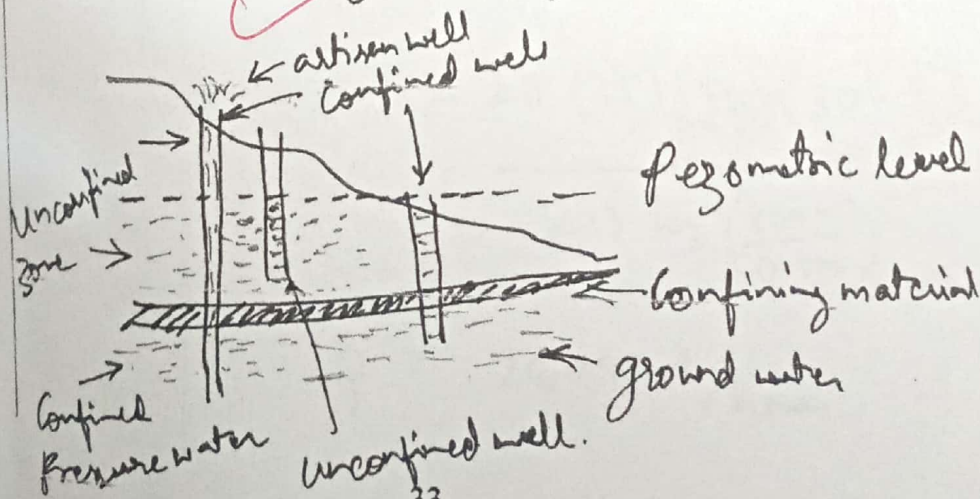 artisan well
Confined wels
Pezometric level
Unconfined
zone
Confining material
ground water
Confined
Pressure water
unconfined well.
33